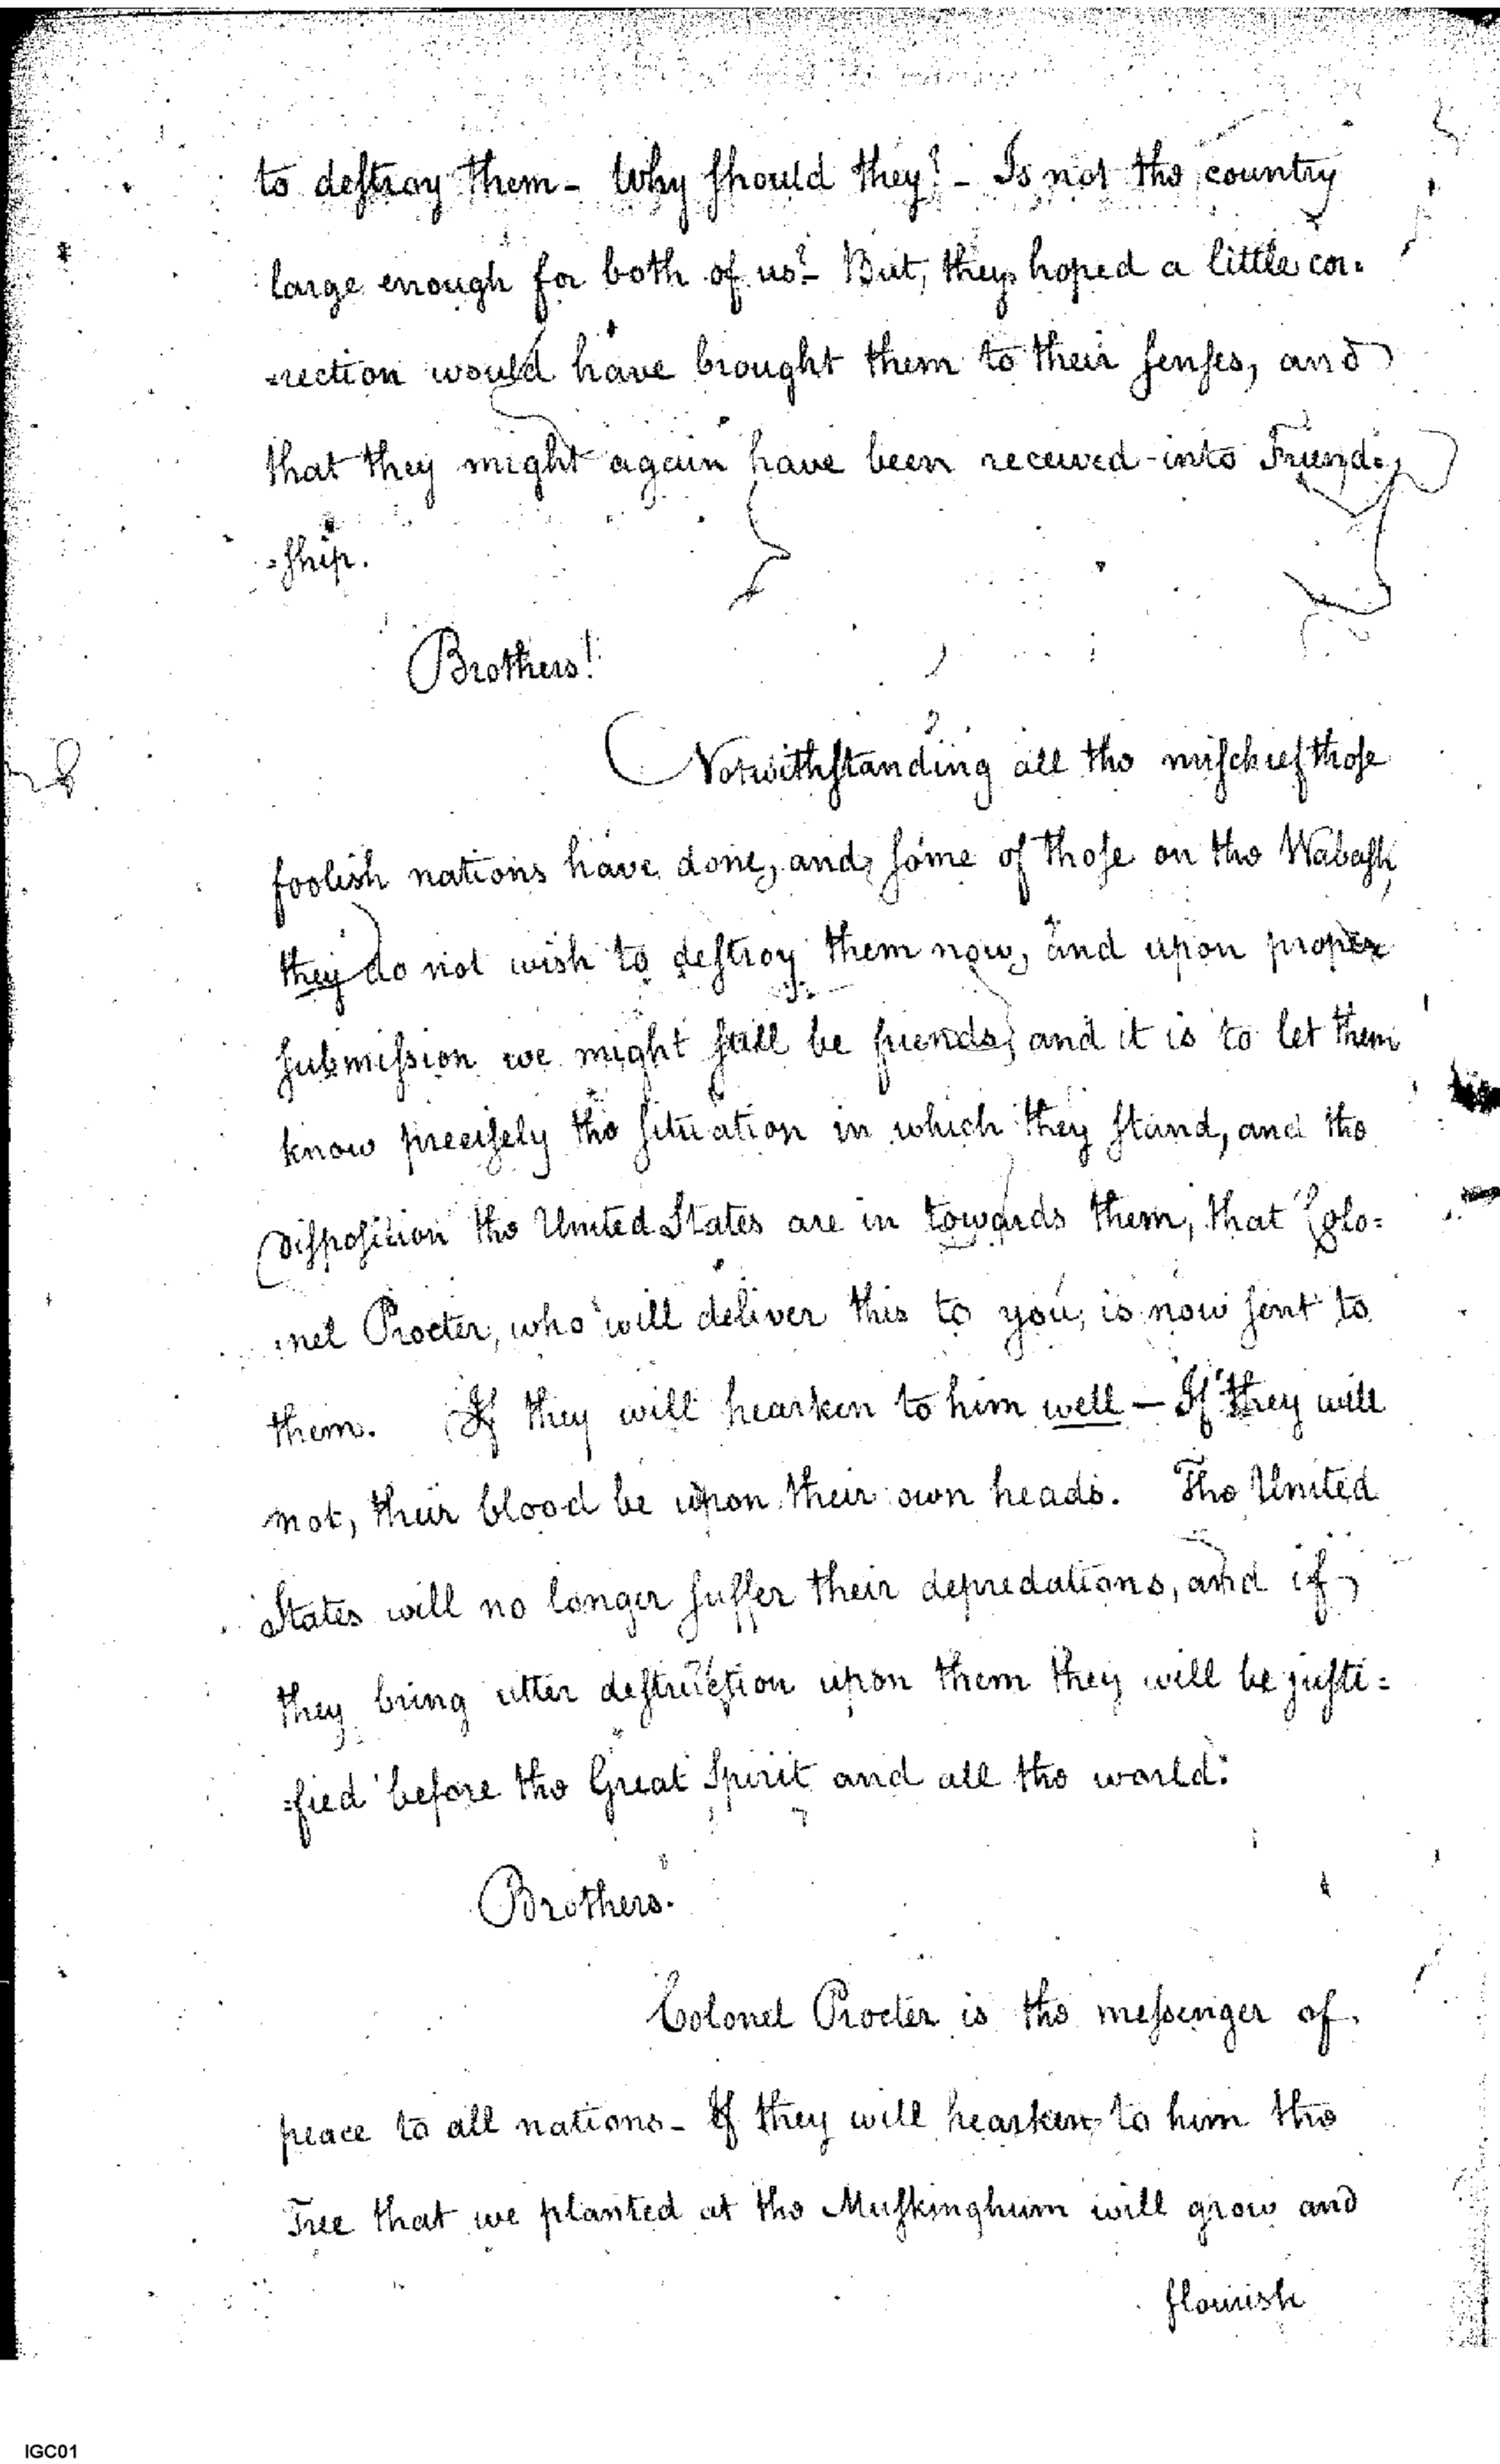 to deſtroy them - Why ſhould they? - Is not the country
large enough for both of us? - But, they hoped a little cor-
-rection would have brought them to their ſenſes, and
that they might again have been received into Friend-
=ſhip.
Brothers!
Notwithſtanding all the miſchief thoſe
fooliſh nations have done, and ſome of thoſe on the Wabaſh,
they do not wish to deſtroy them now, and upon proper
ſubmiſsion we might ſtill be friends, and it is to let them
know preciſely the ſituation in which they ſtand, and the
Diſpoſition the United States are in towards them, that Colo=
=nel Procter, who will deliver this to you, is now ſent to
them. If they will hearken to him well — If they will
not, their blood be upon their own heads. The United
States will no longer ſuffer their depredations, and if
they bring utter deſtruction upon them they will be juſti=
=fied before the Great Spirit and all the world.
Brothers.
Colonel Procter is the meſsenger of
peace to all nations - If they will hearken to him the
Tree that we planted at the Muſkinghum will grow and
flourish
IGC01